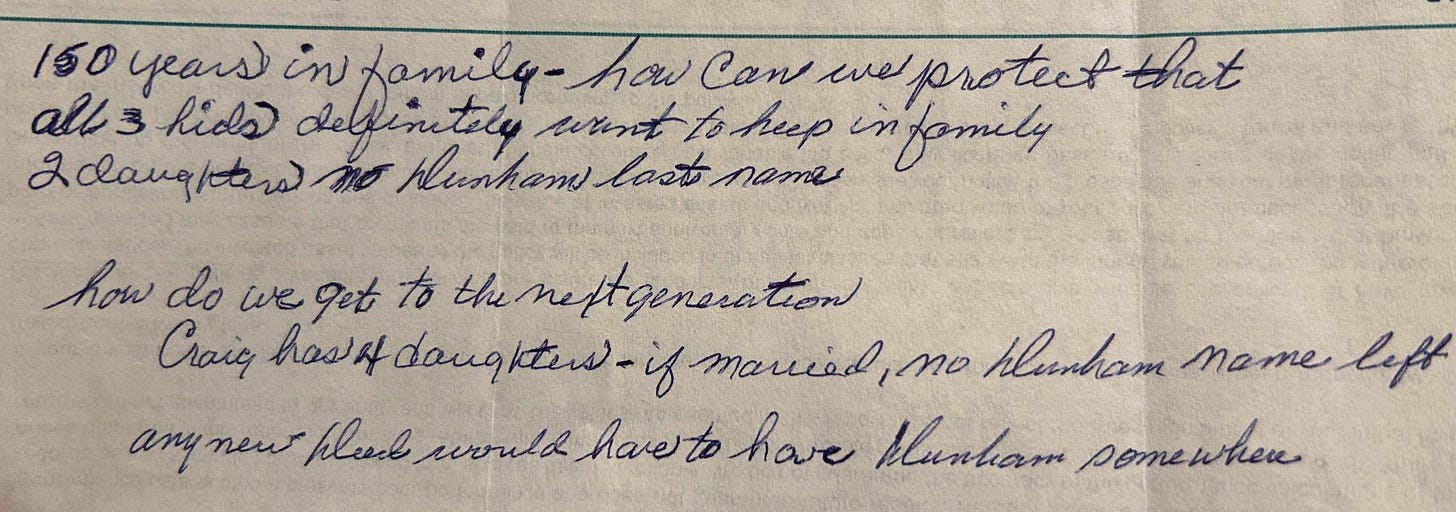 150 years in family - how can we protect that
all 3 kids definitely want to keep in family
2 daughters no Dunham last name
how do we get to the next generation
Craig has 4 daughters - if married, no Dunham name left
any new deed would have to have Dunham somewhere